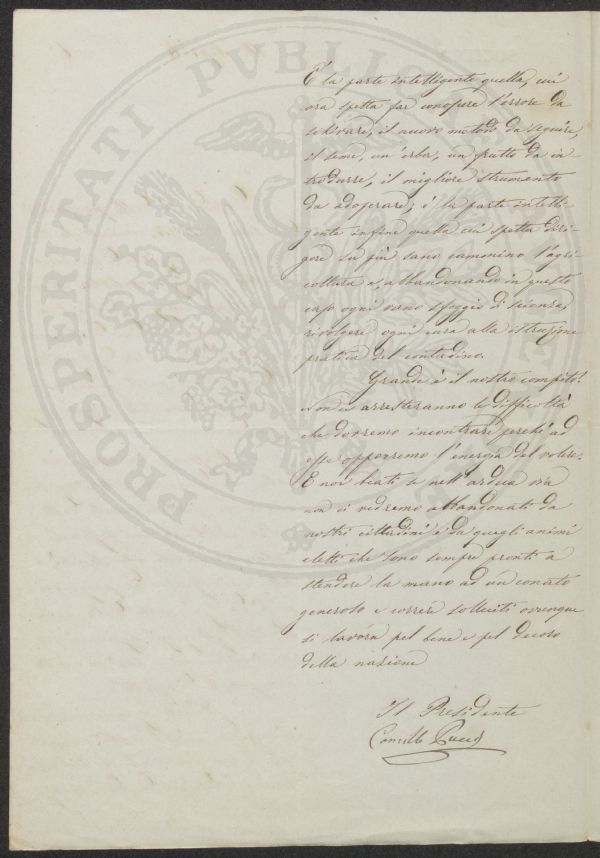 PROSPERITATI PUBLICAE
È la parte intelligente quella, cui
ora spetta far conoscere l'errore da
schivare, il nuovo metodo da seguire,
il seme, un'erba, un frutto da in-
trodurre, il migliore strumento
da adoperare; è la parte intelli-
gente infine quella cui spetta diri-
gere su più sano cammino l'agri-
coltura e, abbandonando in questo
caso ogni vano sfoggio di scienza,
rivolgere ogni cura alla istruzione
pratica del contadino.
Grande è il nostro compito!
Non ci arresteranno le difficoltà
che dovremo incontrare perchè ad
esse opporremo l'energia del volere.
E noi beati se nell'ardua ora
non ci vedremo abbandonati da
nostri cittadini e da quegli animi
eletti che sono sempre pronti a
stendere la mano ad un conato
generoso e correre solleciti ovunque
si lavora pel bene e pel decoro
della nazione
Il Presidente
Camillo Pucci